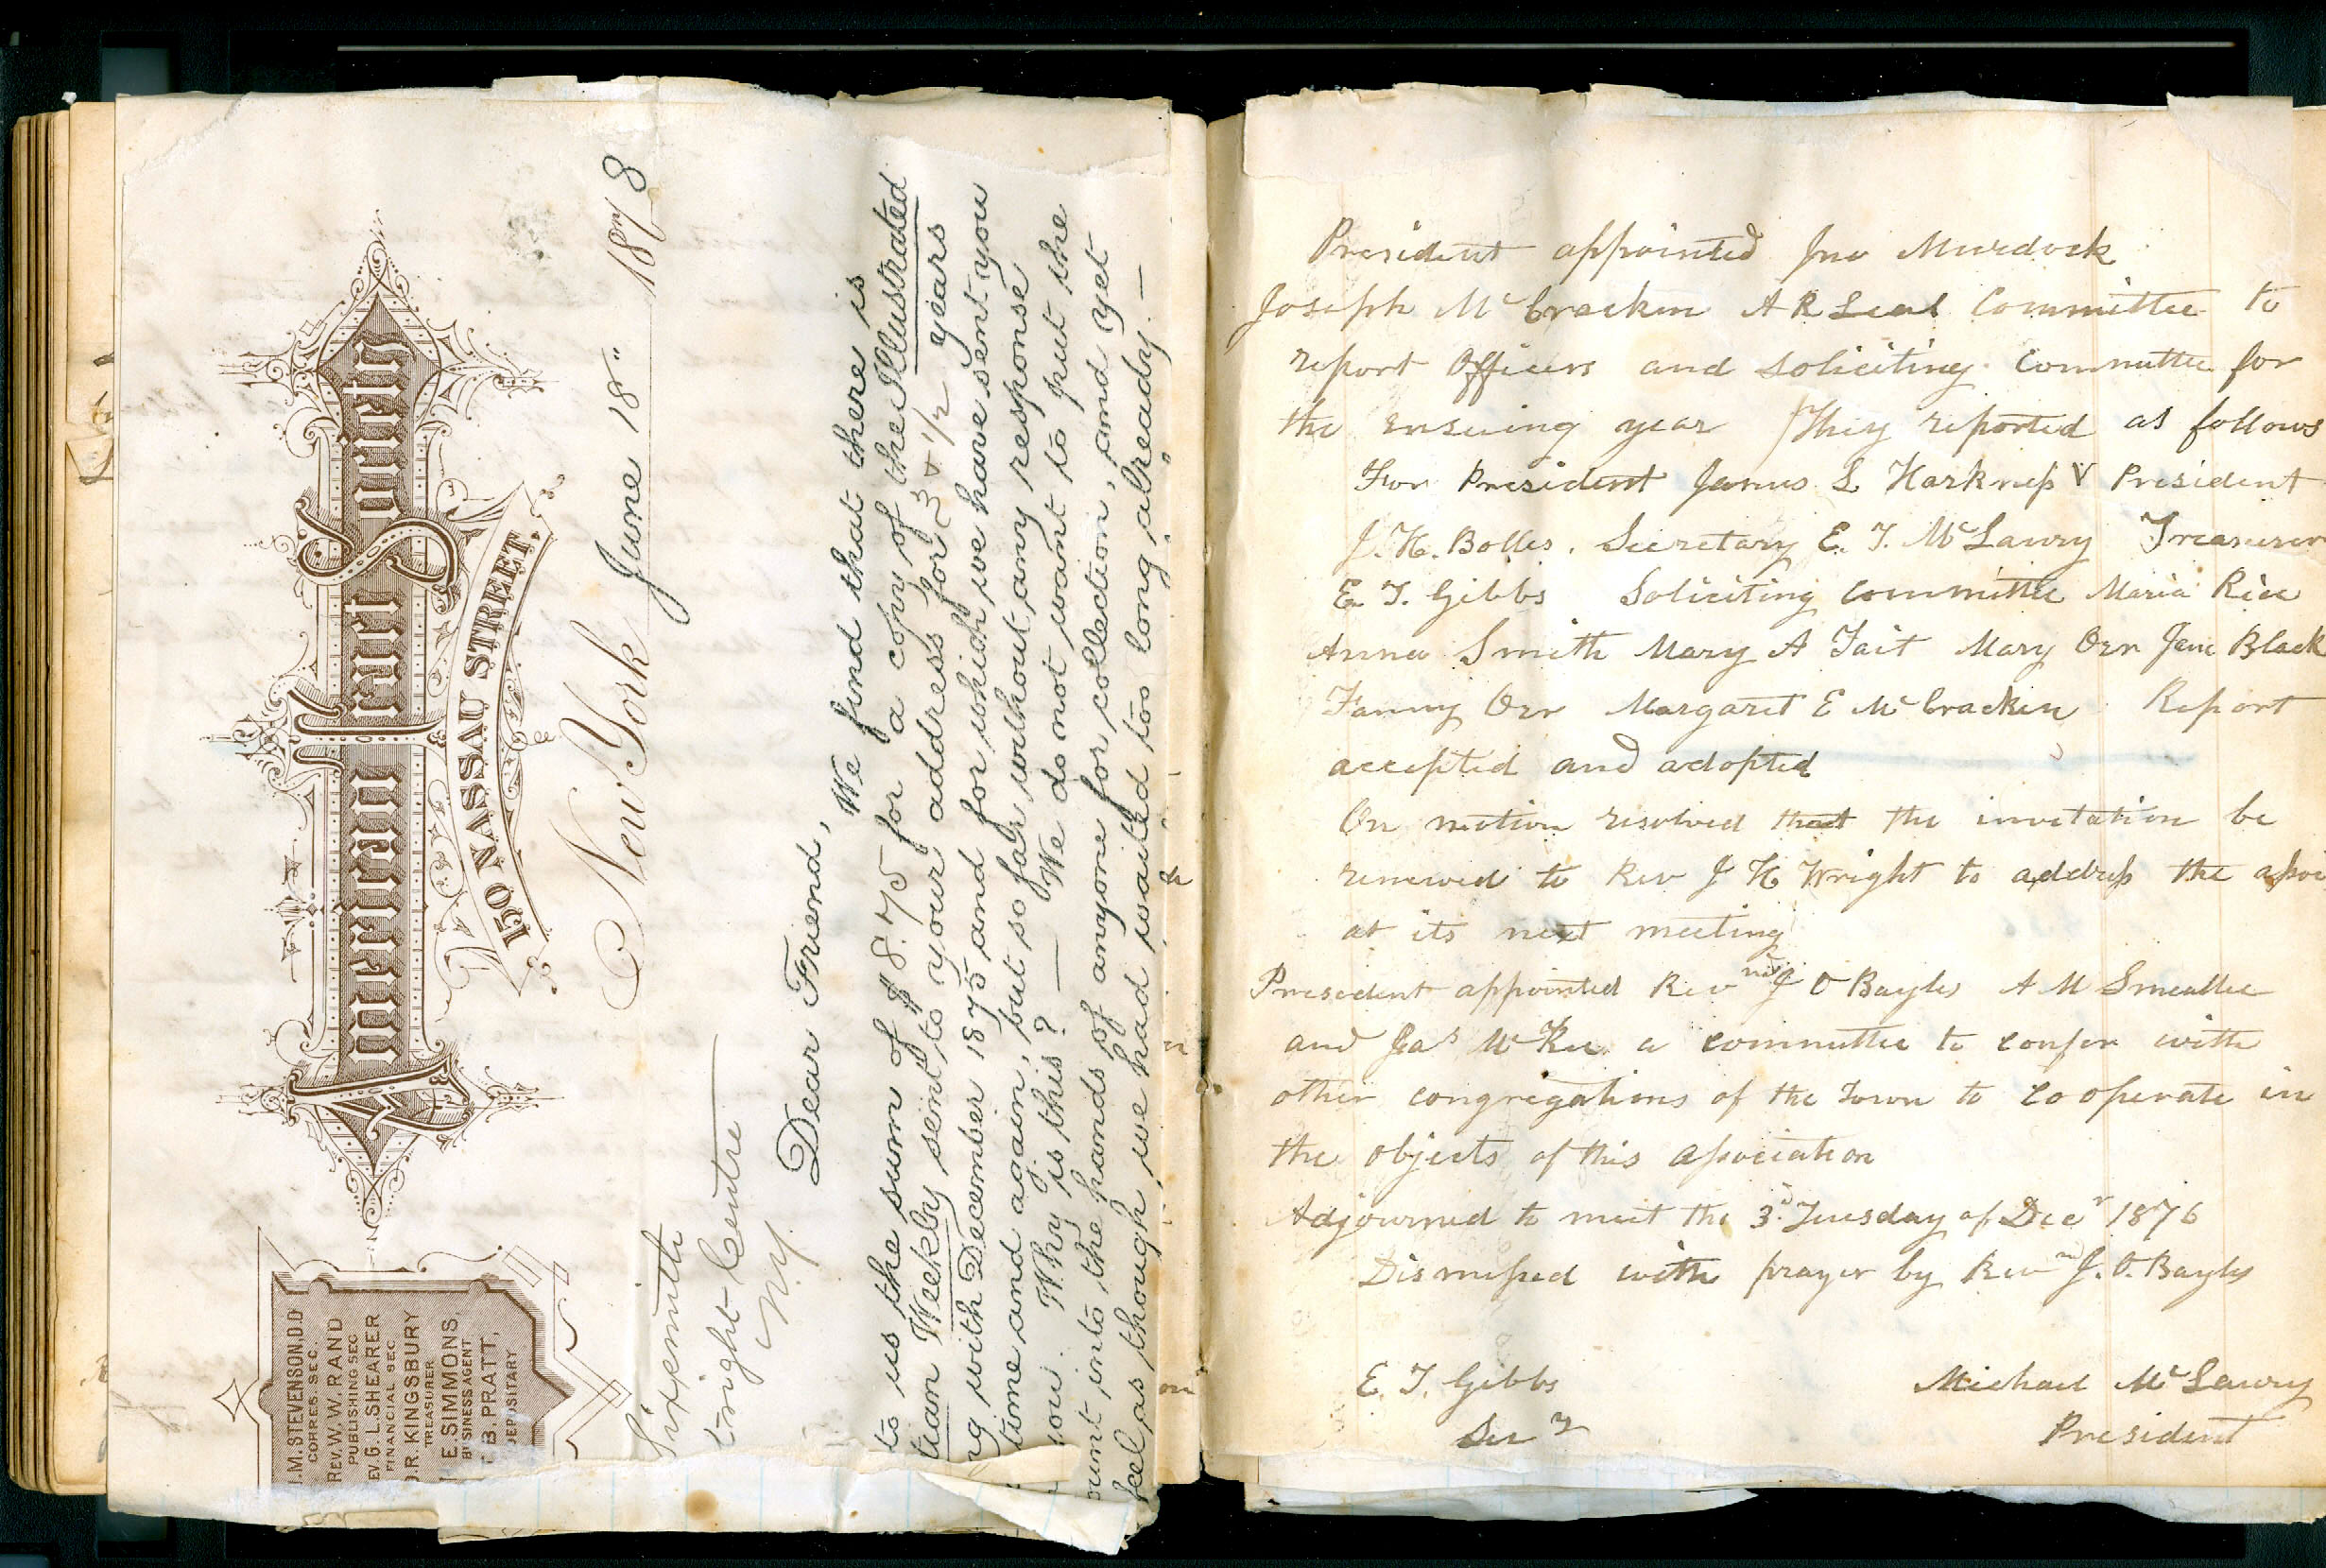 American Tract Society
150 NASSAU STREET.
J.M. STEVENSON, D.D
CORRES. SEC.
REV. W.W. RAND
PUBLISHING SEC
EV G. L. SHEARER
FINANCIAL SEC
O.R. KINGSBURY
TREASURER
E. SIMMONS,
BUSINESS AGENT
B. PRATT,
DEPOSITARY
New York June 18" 1878
tright Centre
N.Y.
Dear Friend,
We find that there is
to us the sum of $8.75 for a copy of the Illustrated
tian Weekly sent to your address for 3 & 1/2 years
ng with December 1875 and for which we have sent you
time and again, but so far without any response
you. Why is this? — We do not want to put the
ount into the hands of anyone for collection, and yet
feel as though we had waited too long already. —
President appointed Jno Murdock
Joseph McCracken A R Leal Committee to
report Officers and soliciting Committee for
the ensuing year They reported as follows
For President James L Harkness V President
J. H. Bolles. Secretary E. T. McLaury Treasurer
E. T. Gibbs Soliciting committee Maria Rice
Anna Smith Mary A Tait Mary Orr Jane Black
Fanny Orr Margaret E McCracken Report
accepted and adopted
On motion resolved that the invitation be
renewed to Rev J H Wright to address the assoc
at its next meeting
President appointed Revnd J O Bayles A M Smeallie
and Jas McKee a committee to confer with
other congregations of the Town to cooperate in
the objects of this association
Adjourned to meet the 3d Tuesday of Decr 1876
Dismissed with prayer by Revnd J. O. Bayles
E. T. Gibbs
Secy
Michael McLaury
President